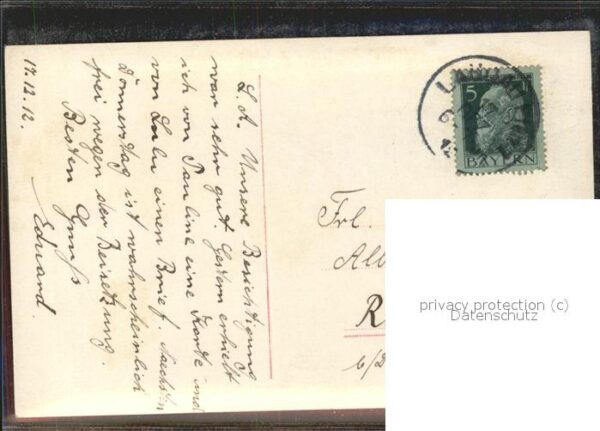 L. A. Unsere Besichtigung
war sehr gut. Gestern erhielt
ich von Pauline eine Karte und
von Lulu einen Brief. Nächsten
Donnerstag ist wahrscheinlich
frei wegen der Beisetzung.
Besten Gruß
Eduard.
17.12.12.
5
BAYERN
Frl.
Alb
R
b/D
privacy protection (c)
Datenschutz